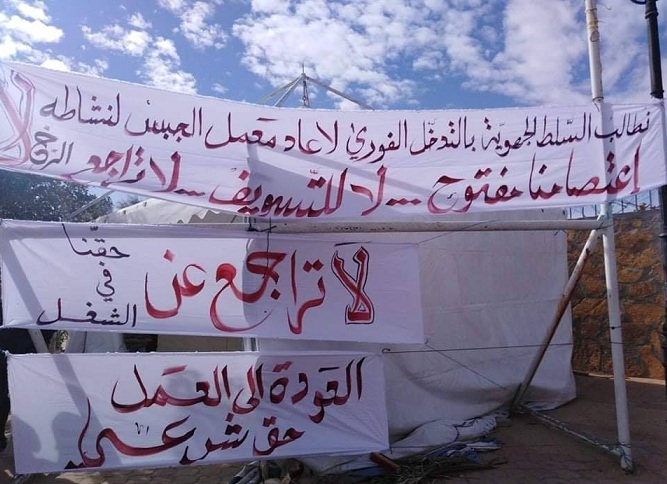 نطالب السلط الجهوية بالتدخل الفوري لاعادة معمل الجبس لنشاطه
إعتصامنا مفتوح ... لا للتسويف ... لا تراجع
لا تراجع عن
حقنا
في
الشغل
العودة الى العمل
حق شرعي